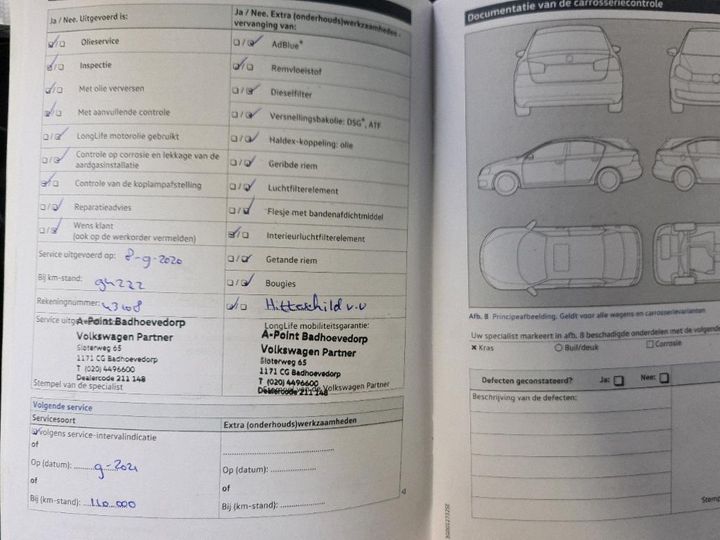 Ja / Nee. Uitgevoerd is:
Olieservice
Inspectie
Met olie verversen
Met aanvullende controle
LongLife motorolie gebruikt
Controle op corrosie en lekkage van de
aardgasinstallatie
Controle van de koplampafstelling
Reparatieadvies
Wens klant
(ook op de werkorder vermelden)
Service uitgevoerd op: 8-9-2020
Bij km-stand: 94222
Rekeningnummer:
A-Point Badhoevedorp
Volkswagen Partner
Sloterweg 65
1171 CG Badhoevedorp
T (020) 4496600
Dealercode 211 148
Stempel van de specialist
Ja / Nee. Extra (onderhouds)werkzaamheden -
vervanging van:
AdBlue®
Remvloeistof
Dieselfilter
Versnellingsbakolie: DSG®, ATF
Haldex-koppeling: olie
Geribde riem
Luchtfilterelement
Flesje met bandenafdichtmiddel
Interieurluchtfilterelement
Getande riem
Bougies
Hitteschild v.v
LongLife mobiliteitsgarantie:
A-Point Badhoevedorp
Volkswagen Partner
Sloterweg 65
1171 CG Badhoevedorp
T (020) 4496600
Dealercode 211 148
Volkswagen Partner
Volgende service
Servicesoort
volgens service-intervalindicatie
of
Op (datum): 9-2021
of
Bij (km-stand): 110.000
Extra (onderhouds)werkzaamheden
Op (datum):
of
Bij (km-stand):
Documentatie van de carrosseriecontrole
Afb. 8 Principeafbeelding. Geldt voor alle wagens en carrosserievarianten
Uw specialist markeert in afb. 8 beschadigde onderdelen met de volgende
Kras Buil/deuk Corrosie
Defecten geconstateerd? Ja: Nee:
Beschrijving van de defecten: